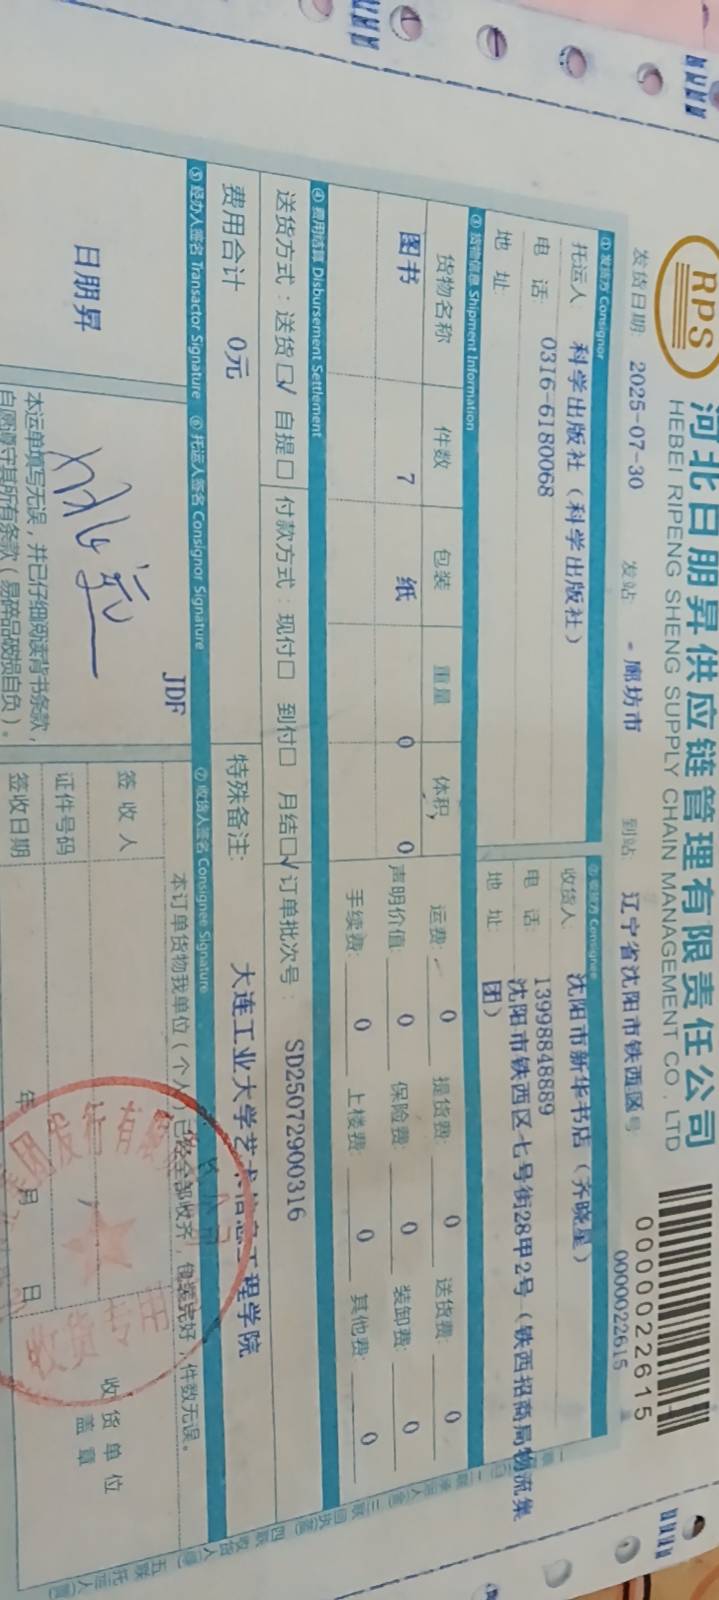 RPS
河北日朋昇供应链管理有限责任公司
HEBEI RIPENG SHENG SUPPLY CHAIN MANAGEMENT CO.,LTD
0000022615
0000022615
发货日期: 2025-07-30 发站: 廊坊市 到站: 辽宁省沈阳市铁西区 号
① 发货方 Consignor
② 收货方 Consignee
托运人: 科学出版社（科学出版社）
收货人: 沈阳市新华书店（齐晓星）
电 话: 0316-6180068
电 话: 13998848889
地 址:
地 址: 沈阳市铁西区七号街28甲2号（铁西招商局物流集
团）
③ 货物信息 Shipment Information
货物名称 件数 包装 重量 体积
图书 7 纸 0 0
运费: 0 提货费: 0 送货费: 0
声明价值: 0 保险费: 0 装卸费: 0
手续费: 0 上楼费: 0 其他费: 0
④ 费用结算 Disbursement Settlement
送货方式：送货□√ 自提□ 付款方式：现付□ 到付□ 月结□√ 订单批次号： SD25072900316
费用合计 0元
特殊备注: 大连工业大学艺术信息工程学院
⑤ 经办人签名 Transactor Signature ⑥ 托运人签名 Consignor Signature ⑦ 收货人签名 Consignee Signature
日朋昇
JDF
本运单填写无误，并已仔细阅读背书条款，
自愿遵守其所有条款（易碎品破损自负）。
本订单货物我单位（个人）已经全部收齐，包装完好，件数无误。
签 收 人
证件号码
签收日期
年 月 日
收 货 单 位
盖 章
发行有限
收货专用